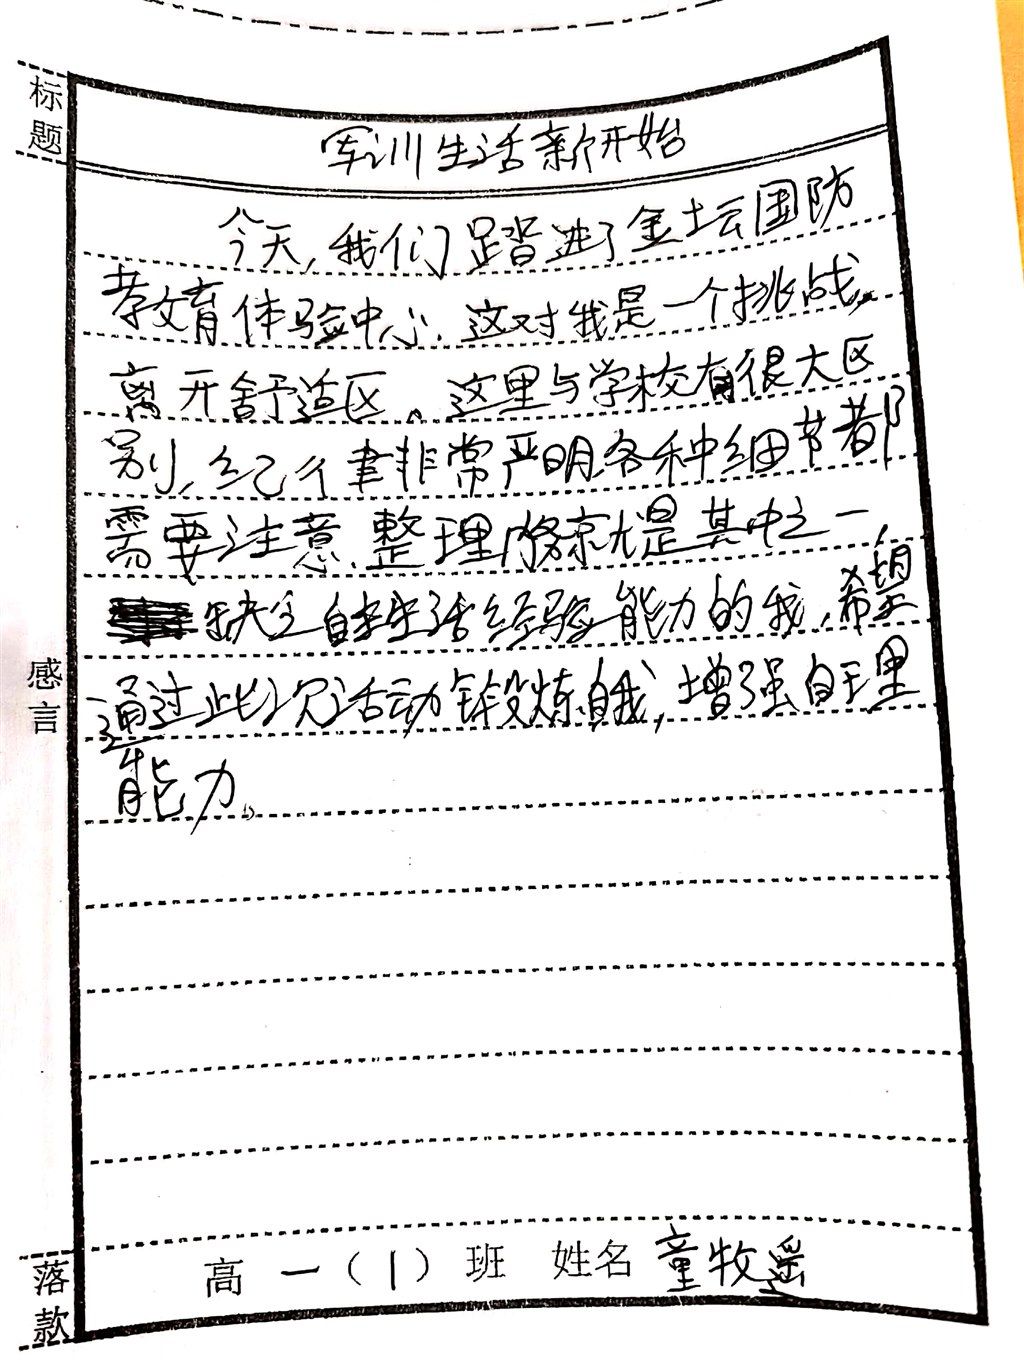 标题
军训生活新开始
今天,我们踏进了金坛国防
教育体验中心.这对我是一个挑战。
离开舒适区。这里与学校有很大区
别,纪律非常严明各种细节都
需要注意.整理就是其中之一,
缺乏自主生活经验能力的我,希望
通过此次活动锻炼自我,增强自理
能力。
感言
落款
高一(1)班 姓名 童牧遥